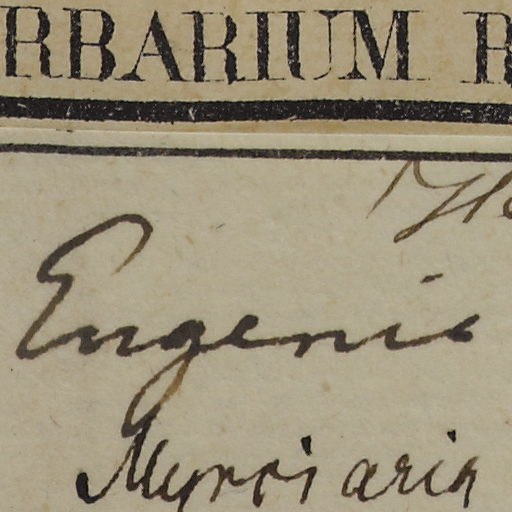 RBARIUM R
Eugenia
Myrciaria